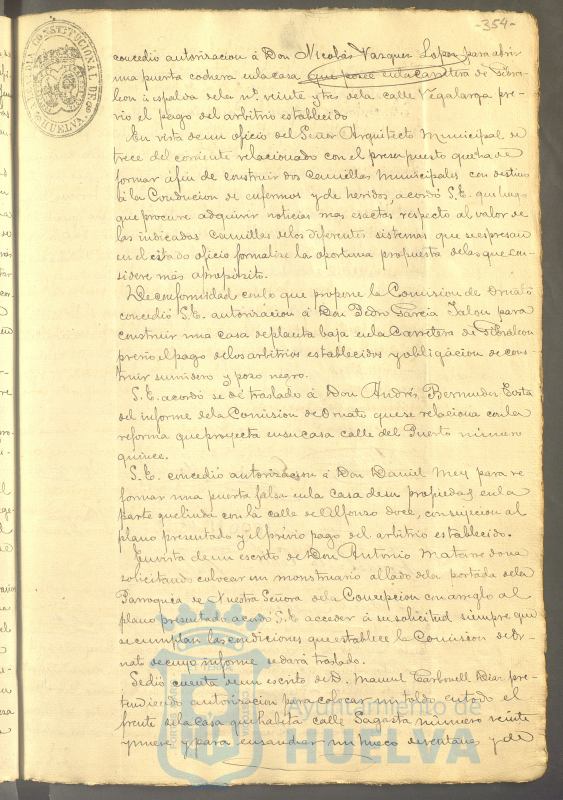 -354-
ALCALDIA CONSTITUCIONAL DE
HUELVA
concedio autorizacion á Don Nicolás Vazquez Lopez para abrir
una puerta cochera en la casa que posee en la Carretera de Gibra-
leon á espalda de la nº. veinte y tres de la calle Vegalarga pre-
vio el pago del arbitrio establecido.
En vista de un oficio del Señor Arquitecto Municipal de
trece del corriente relacionado con el presupuesto que ha de
formar á fin de construir dos camillas municipales con destino
á la Conducion de enfermos y de heridos, acordó S.E. que luego
que procure adquirir noticias mas exactas respecto al valor de
las indicadas camillas de los diferentes sistemas que se espresan
en el citado oficio formalice la oportuna propuesta de las que con-
sidere más apropósito.
De conformidad con lo que propone la Comision de Ornato
concedió S.E. autorizacion á Don Pedro Garcia Jalon para
construir una casa de planta baja en la Carretera de Gibraleon
previo el pago de los arbitrios establecidos y obligacion de cons-
truir sumidero y pozo negro.
S.E. acordó se dé traslado á Don Andrés Bermudez
del informe de la Comision de Ornato que se relaciona con la
reforma que proyecta en su casa calle del Puerto número
quince.
S.E. concedió autorizacion á Don Daniel Mey para re
formar una puerta falsa en la casa de su propiedad en la
parte que linda con la calle de Alfonso doce, con sujecion al
plano presentado y el prévio pago del arbitrio establecido.
En vista de un escrito de Don Antonio
solicitando colocar un monstruario al lado de la portada de la
Parroquia de Nuestra Señora de la Concepcion con arreglo al
plano presentado acordó S.E. acceder á su solicitud siempre que
se cumplan las condiciones que establece la Comision de Or-
nato de cuyo informe se dará traslado.
Se dió cuenta de un escrito de D. Manuel Carbonell Diaz pre-
tendiendo autorizacion para colocar un toldo en todo el
frente de la casa que habita calle Sagasta número veinte
y nueve y para ensanchar un hueco de ventana y de
Ayuntamiento de
HUELVA